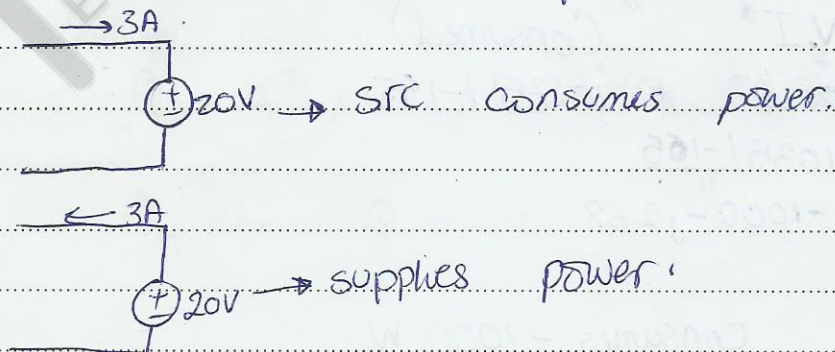 → 3A
± 20V → Src consumes power.
← 3A
± 20V → supplies power.